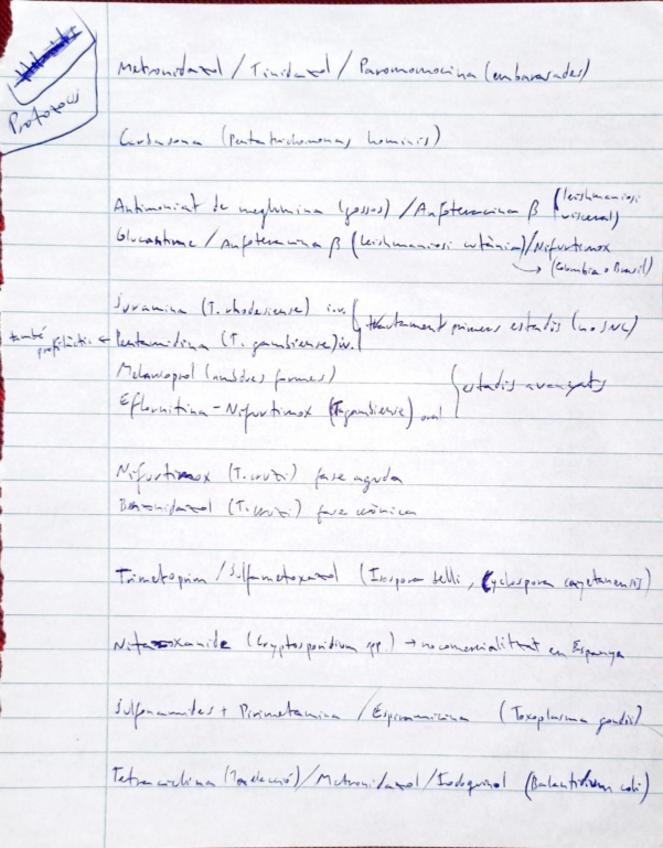 Protozous
Metronidazol / Tinidazol / Paromomocina (embarasades)
Carbasona (Pentatrichomonas hominis)
Antimoniat de meglumina (gossos) / Anfotericina β (leishmaniosi visceral)
Glucantime / Anfotericina β (leishmaniosi cutània) / Nifurtimox
→ (Colombia o Brasil)
Suramina (T. rhodesiense) i.v.
tractament primers estadis (no SNC)
també profilàctic ← Pentamidina (T. gambiense) iv.
Melarsoprol (ambdues formes)
estadis avançats
Eflornitina - Nifurtimox (T. gambiense) oral
Nifurtimox (T. cruzi) fase aguda
Benznidazol (T. cruzi) fase crònica
Trimetoprim / Sulfametoxazol (Isospora belli, Cyclospora cayetanensis)
Nitazoxanide (Cryptosporidium spp.) → no comercialitzat en Espanya
Sulfonamides + Pirimetamina / Espiramicina (Toxoplasma gondii)
Tetraciclina (1a elecció) / Metronidazol / Iodoquinol (Balantidium coli)